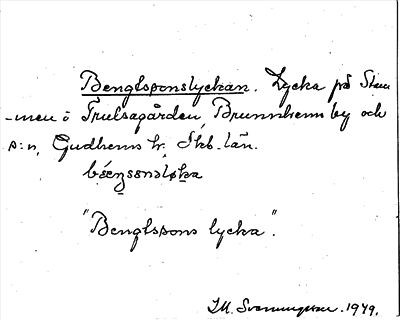 Bengtsonslyckan. Lycka på Stom
-men i Trulsagården, Brunnhems by och
s:n, Gudhems hr, Skb. län.
"Bengtssons lycka".
J.M. Svenningsson. 1949.